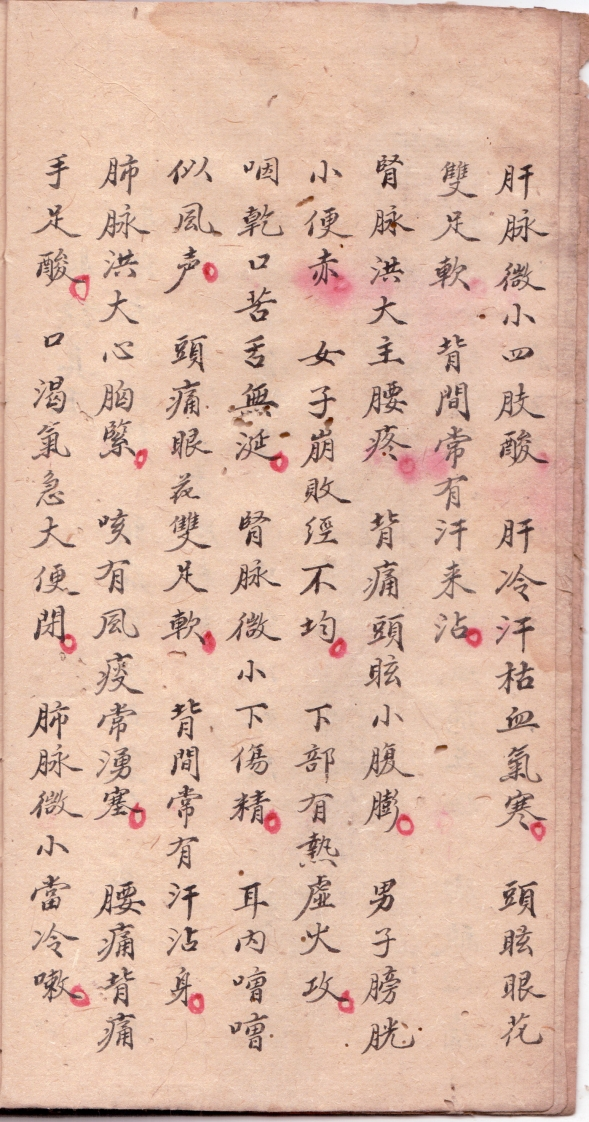 肝脉微小四肢酸　肝冷汗枯血氣寒　頭眩眼花
雙足軟　背間常有汗来沾
腎脉洪大主腰疼　背痛頭眩小腹膨　男子膀胱
小便赤　女子崩敗經不均　下部有熱虛火攻
咽乾口苦舌無涎　腎脉微小下傷精　耳内噌噌
似風声　頭痛眼花雙足軟　背間常有汗沾身
肺脉洪大心胸緊　咳有風痰常湧塞　腰痛背痛
手足酸　口渴氣急大便閉　肺脉微小當冷嗽